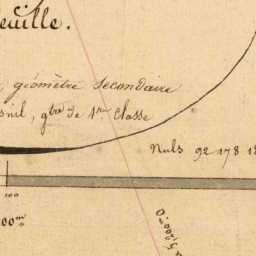 euille.
géomètre secondaire
snil, gtre de 1re Classe
Nuls 92 178 1
100
00m
à 5,000.0